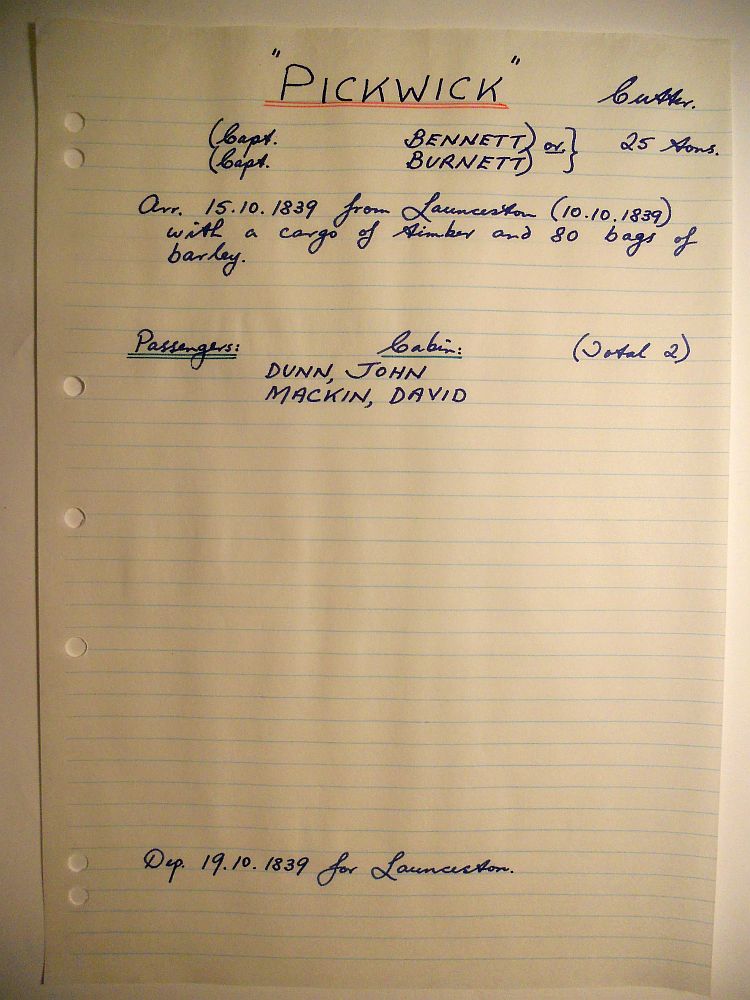 "PICKWICK" Cutter.
(Capt. BENNETT) or } 25 tons.
(Capt. BURNETT)
Arr. 15.10.1839 from Launceston (10.10.1839)
with a cargo of timber and 80 bags of
barley.
Passengers: Cabin: (Total 2)
DUNN, JOHN
MACKIN, DAVID
Dep. 19.10.1839 for Launceston.